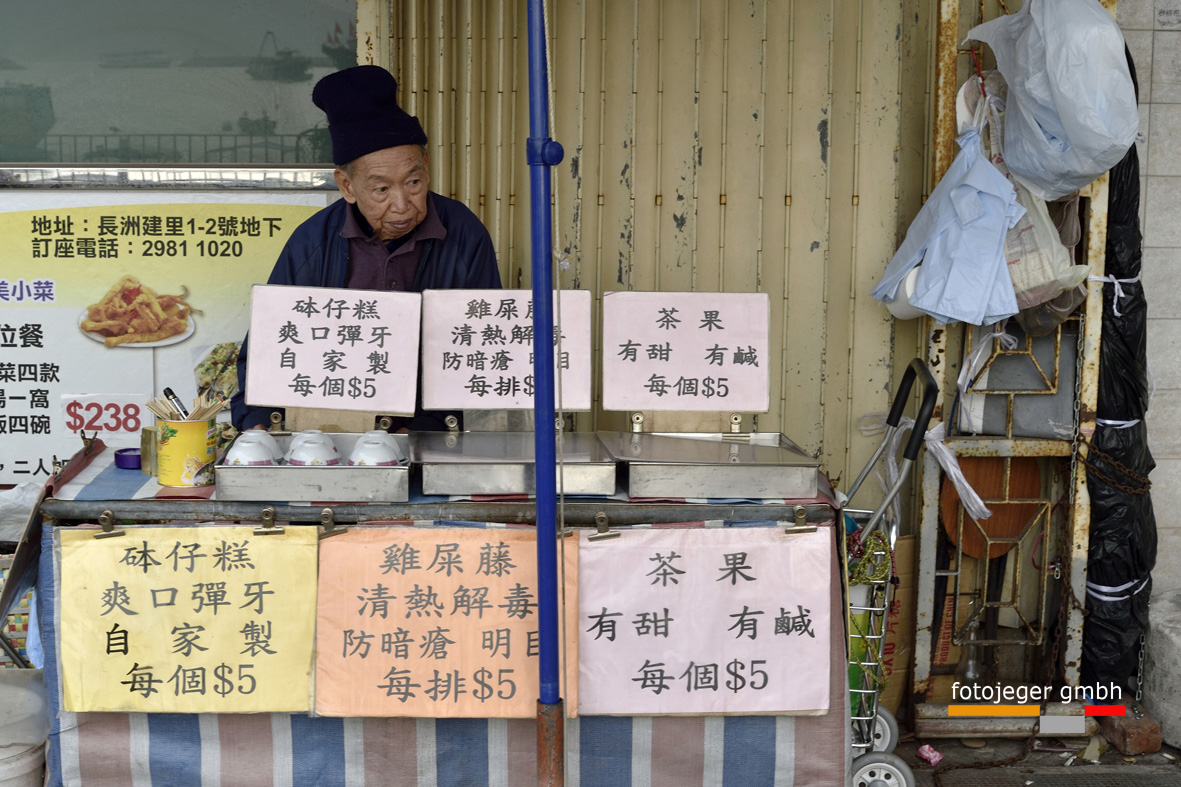 地址：長洲建里1-2號地下
訂座電話：2981 1020
美小菜
位餐
菜四款
湯一窩
飯四碗
$238
，二人
砵仔糕
爽口彈牙
自家製
每個$5
雞屎
清熱解毒
防暗瘡 明目
每排$5
茶果
有甜 有鹹
每個$5
砵仔糕
爽口彈牙
自家製
每個$5
雞屎藤
清熱解毒
防暗瘡 明目
每排$5
茶果
有甜 有鹹
每個$5
fotojeger gmbh